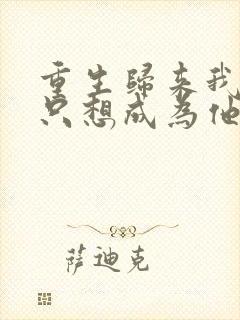 重生歸来我
只想成為他
萨迪克